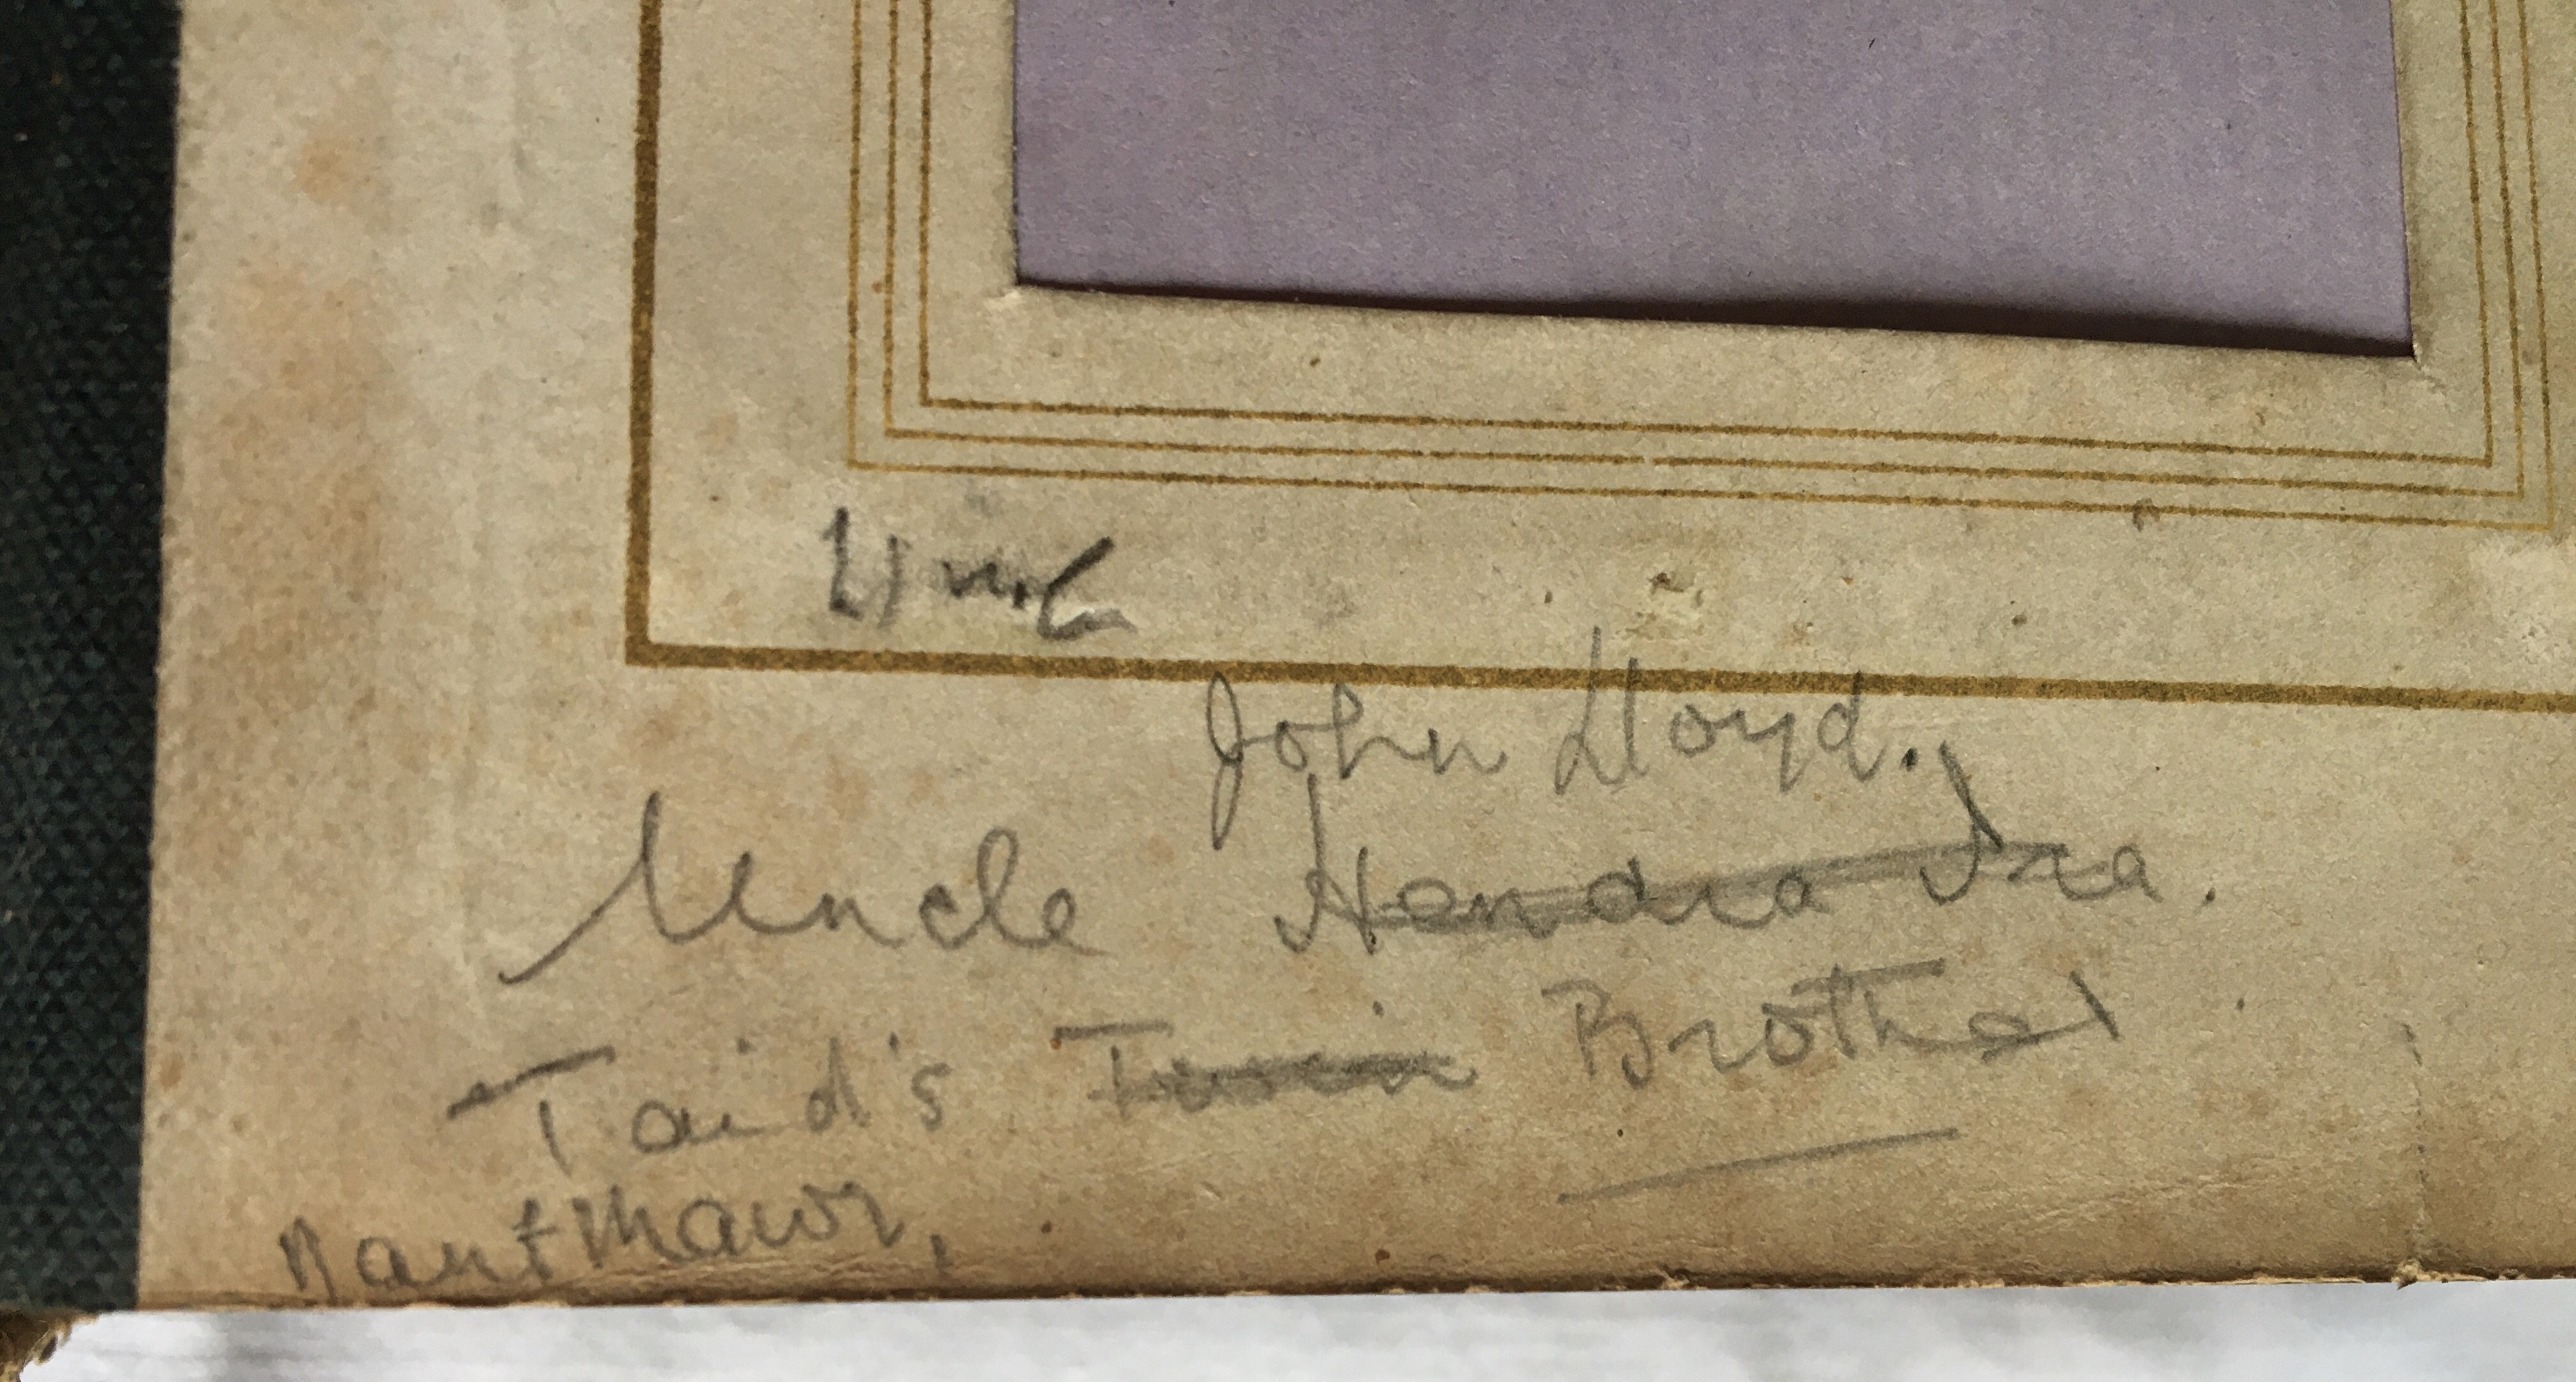 John Lloyd.
Uncle Hendra
Taid's Twin Brother
Nantmawr,